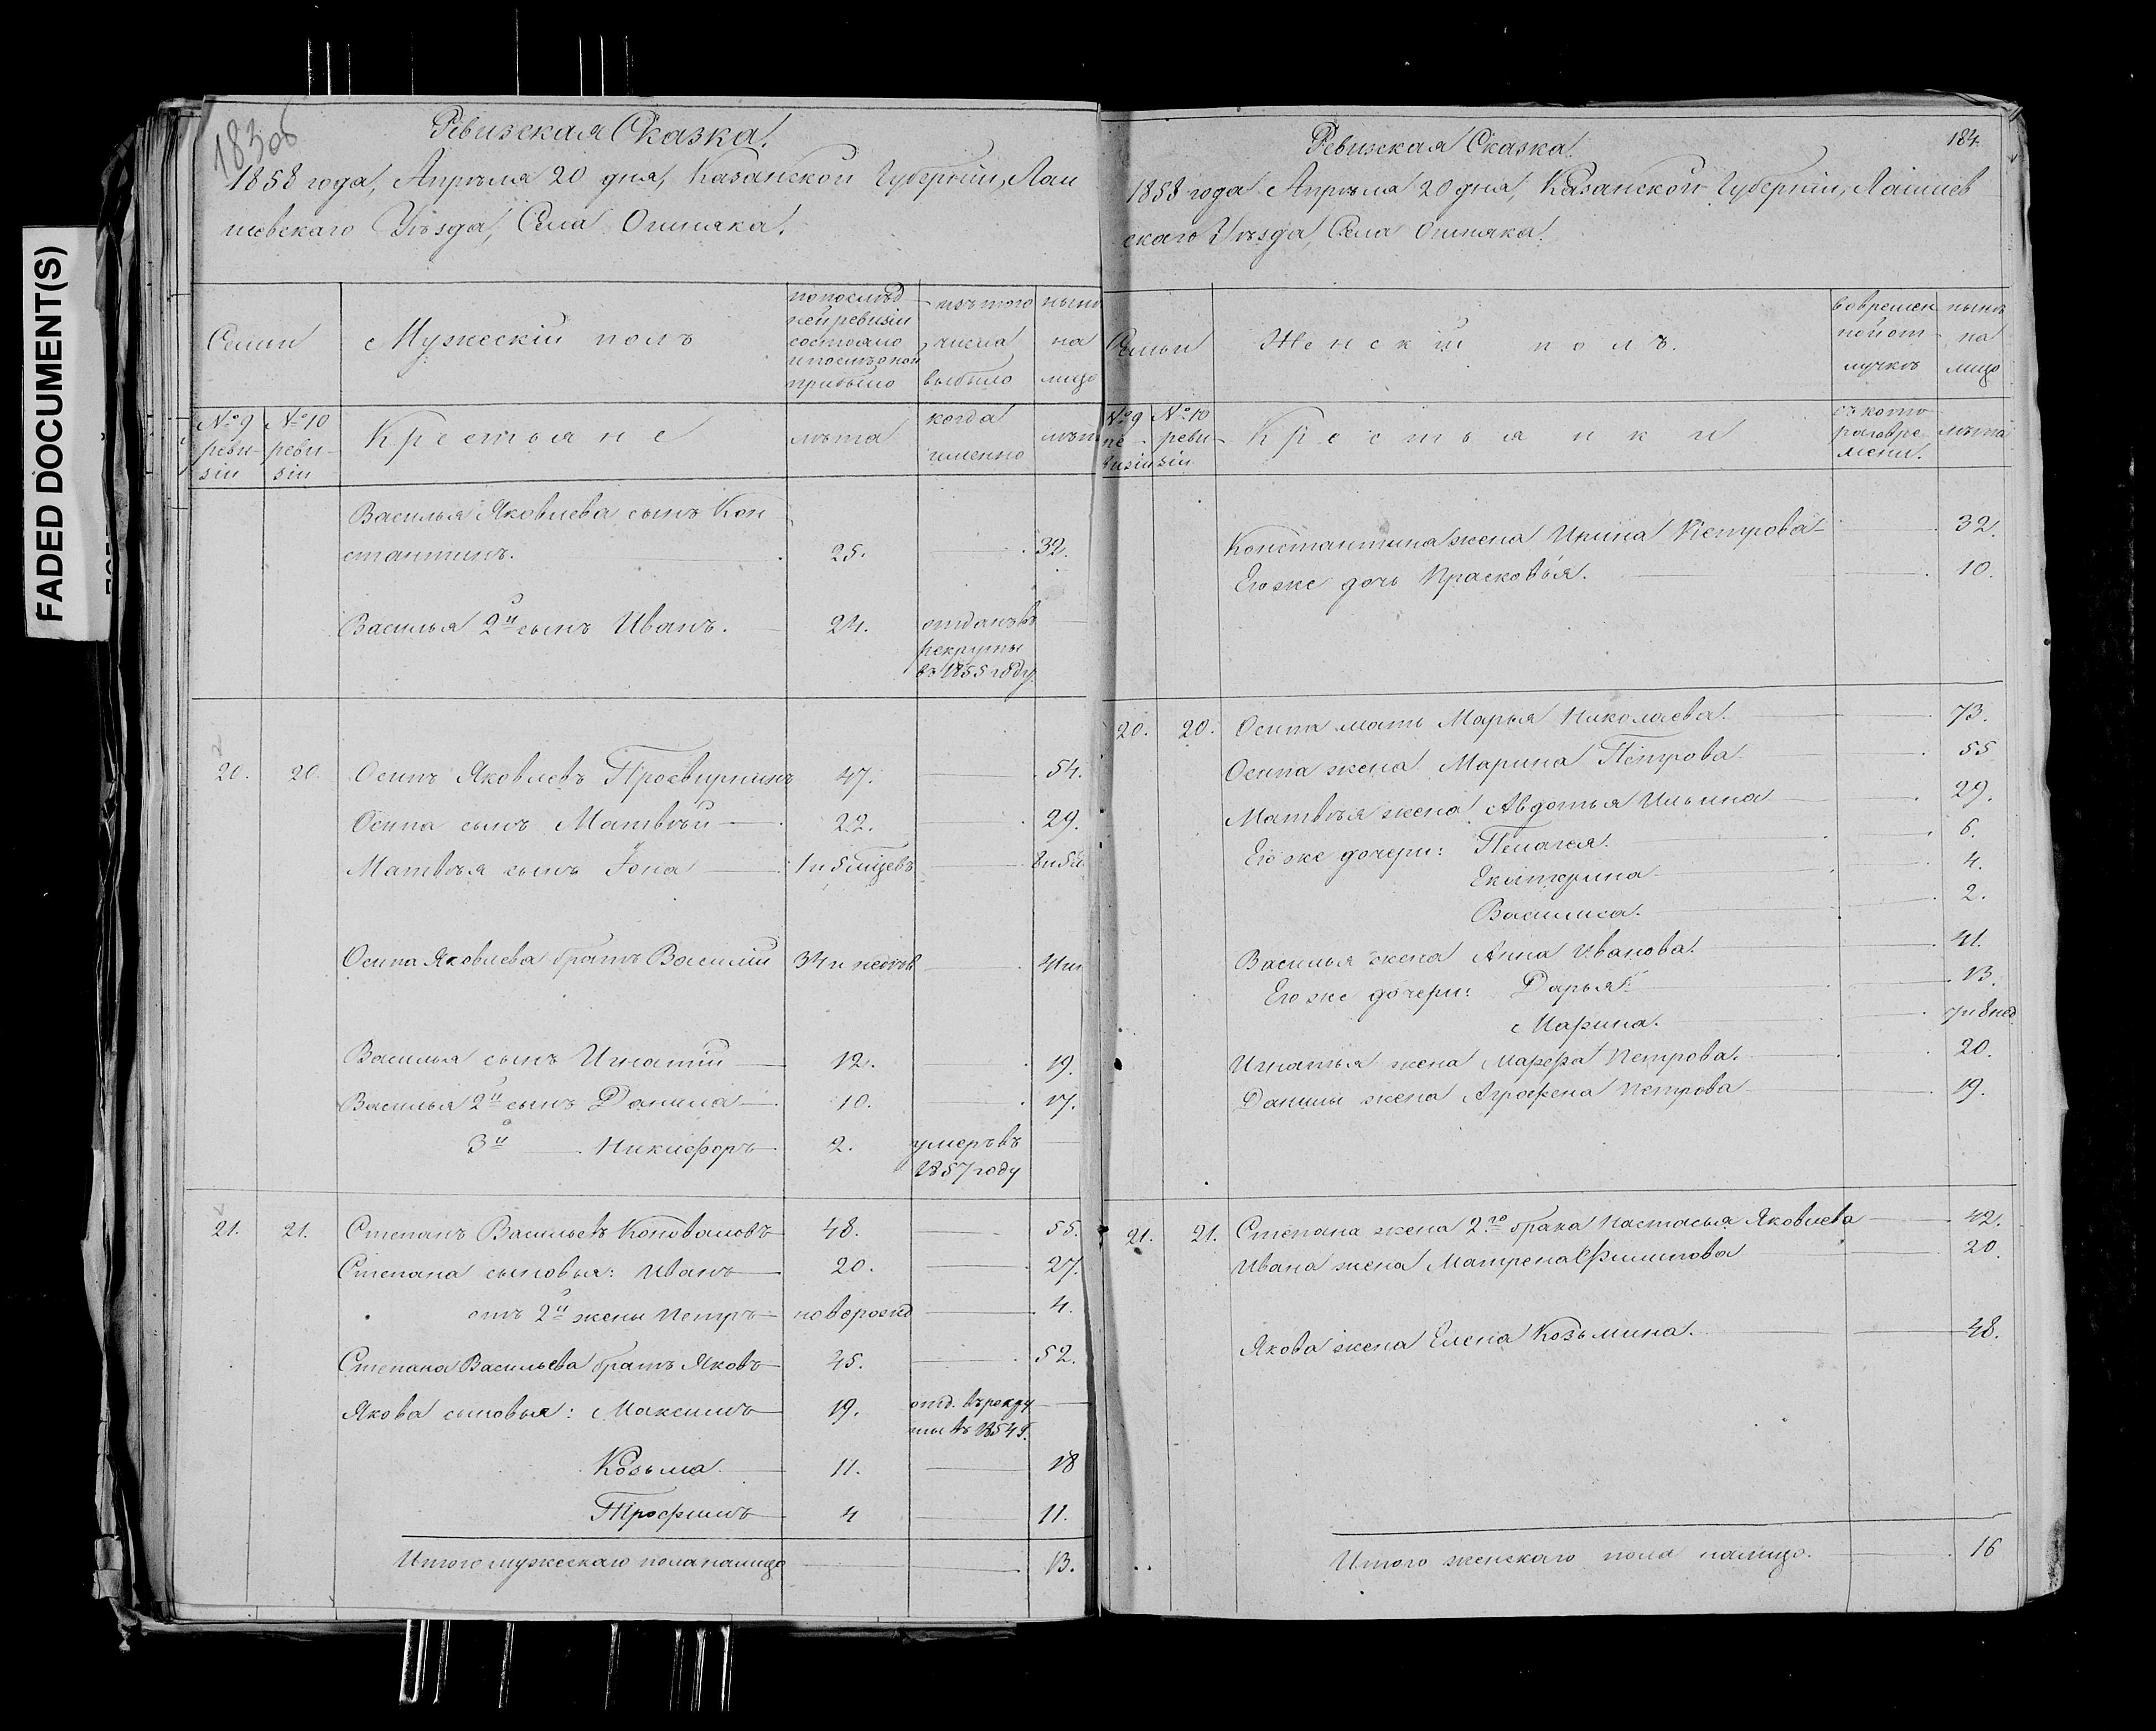 FADED DOCUMENT(S)
183 об
Ревизская Сказка.
1858 года, Апрѣля 20 дня, Казанской Губерніи, Лаи
шевскаго Уѣзда, Села Ошняка.
Семьи
Мужескій полъ
по послѣд
ней ревизіи
состояло
и послѣ оной
прибыло
изъ того
числа
выбыло
нынѣ
на
лицо
№ 9
реви-
зіи
№ 10
реви-
зіи
Крестьяне
лѣта
когда
именно
лѣта
Василья Яковлева сынъ Кон
стантинъ. 25. 32.
Василья 2й сынъ Иванъ. 24. отданъ въ
рекруты
въ 1855 году
20. 20. Осипъ Яковлевъ Просвирнинъ 47. 54.
Осипа сынъ Матвѣй 22. 29.
Матвѣя сынъ Іона 1 и 5 мѣцевъ 8 и 5 м
Осипа Яковлева братъ Василій 34 и недѣль 41 и
Василья сынъ Игнатій 12. 19.
Василья 2й сынъ Данила 10. 17.
3й Никифоръ 2. умеръ въ
1857 году
21. 21. Степанъ Васильевъ Коноваловъ 48. 55.
Степана сыновья: Иванъ 20. 27.
отъ 2й жены Петръ новорожд 4.
Степана Васильева братъ Яковъ 45. 52.
Якова сыновья: Максимъ 19. отд. въ рекру
ты въ 1854 г.
Козьма 11. 18
Трофимъ 4 11.
Итого мужескаго пола налицо 13.
184.
Ревизская Сказка.
1858 года Апрѣля 20 дня, Казанской Губерніи, Лаишев
скаго Уѣзда, Села Ошняка.
Семьи
Женскій полъ.
во времен
ной от-
лучкѣ
нынѣ
на
лицо
№ 9
ре-
визіи
№ 10
реви-
зіи
Крестьянки
съ кото-
раго вре
мени.
лѣта
Константина жена Ирина Петрова 32.
Его же дочь Прасковья. 10.
20. 20. Осипа мать Марья Николаева. 73.
Осипа жена Марина Петрова 55
Матвѣя жена Авдотья Ильина 29.
Его же дочери: Пелагея. 6.
Екатерина 4.
Василиса. 2.
Василья жена Анна Иванова. 41.
Его же дочери: Дарья 13.
Марина. 7 и 8 нед
Игнатья жена Марфа Петрова. 20.
Данилы жена Агрофена Петрова 19.
21. 21. Степана жена 2го брака Настасья Яковлева 42.
Ивана жена Матрена Филипова 20.
Якова жена Елена Козьмина. 48.
Итого женскаго пола налицо. 16